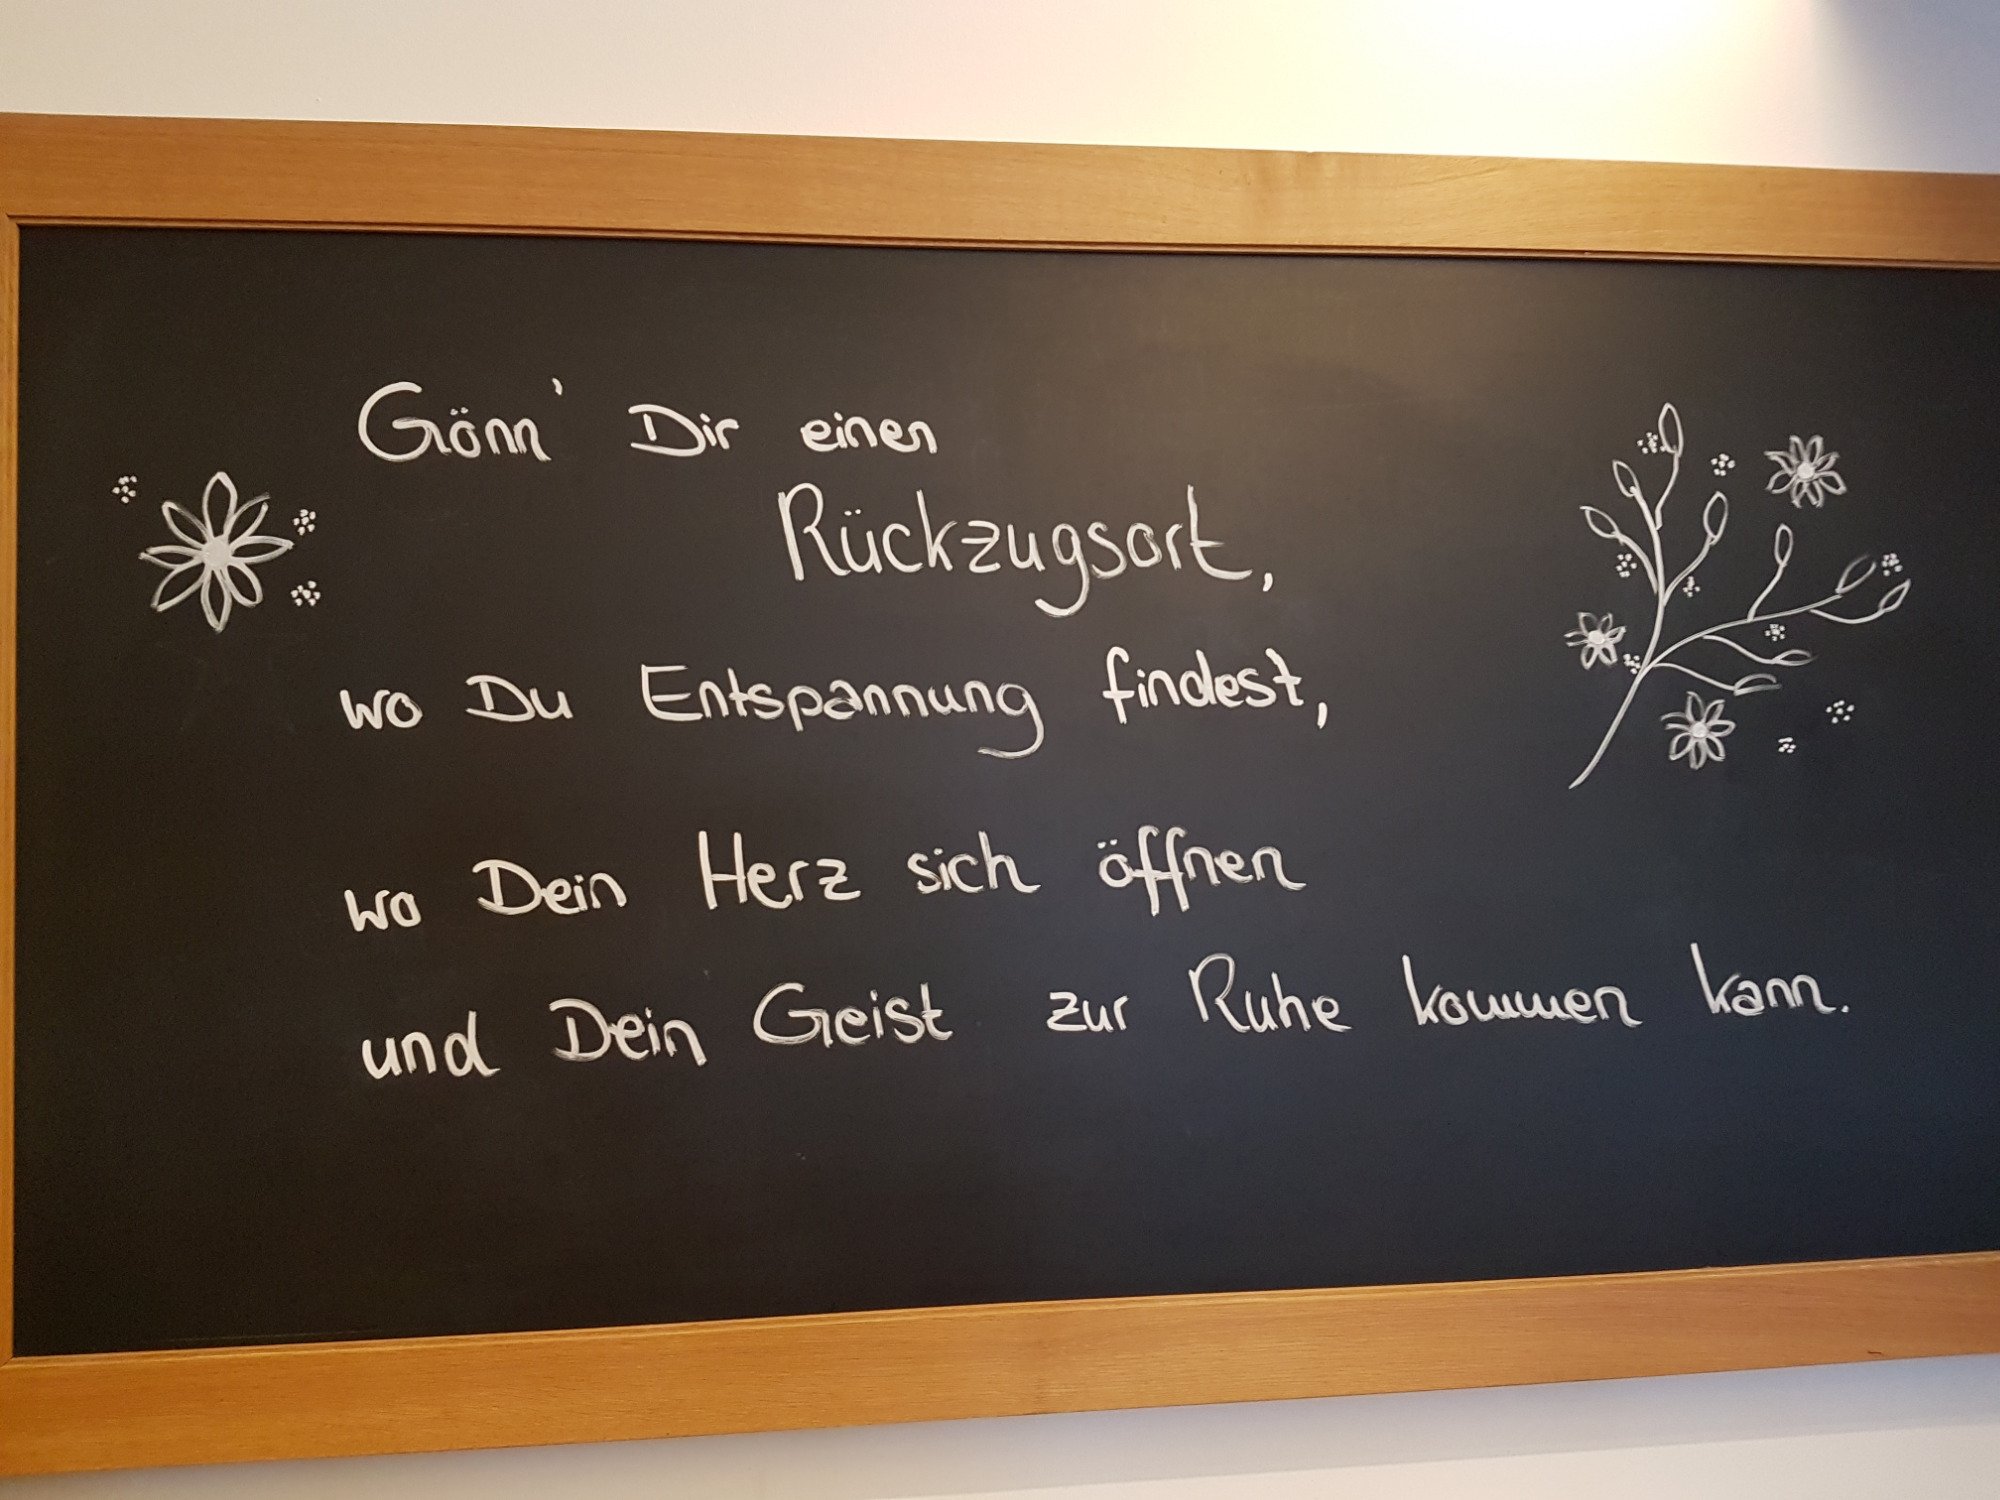 Gönn' Dir einen
Rückzugsort,
wo Du Entspannung findest,
wo Dein Herz sich öffnen
und Dein Geist zur Ruhe kommen kann.